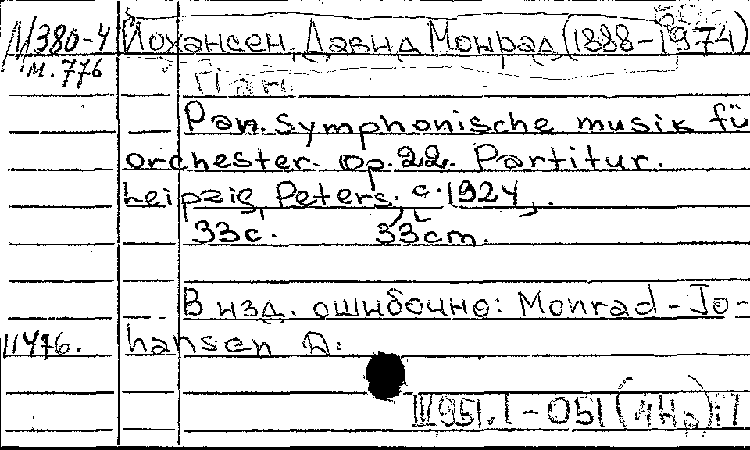 М380-4 Йохансен, Давид Монрад (1888-1974)
м. 776
Пан
Pan. Symphonische musik fü
orchester. Op. 22. Partitur.
Leipzig, Peters. c. 1924.
33с. 33cm.
В изд. ошибочно: Monrad-Jo-
11476. hansen D.
III951.1-051